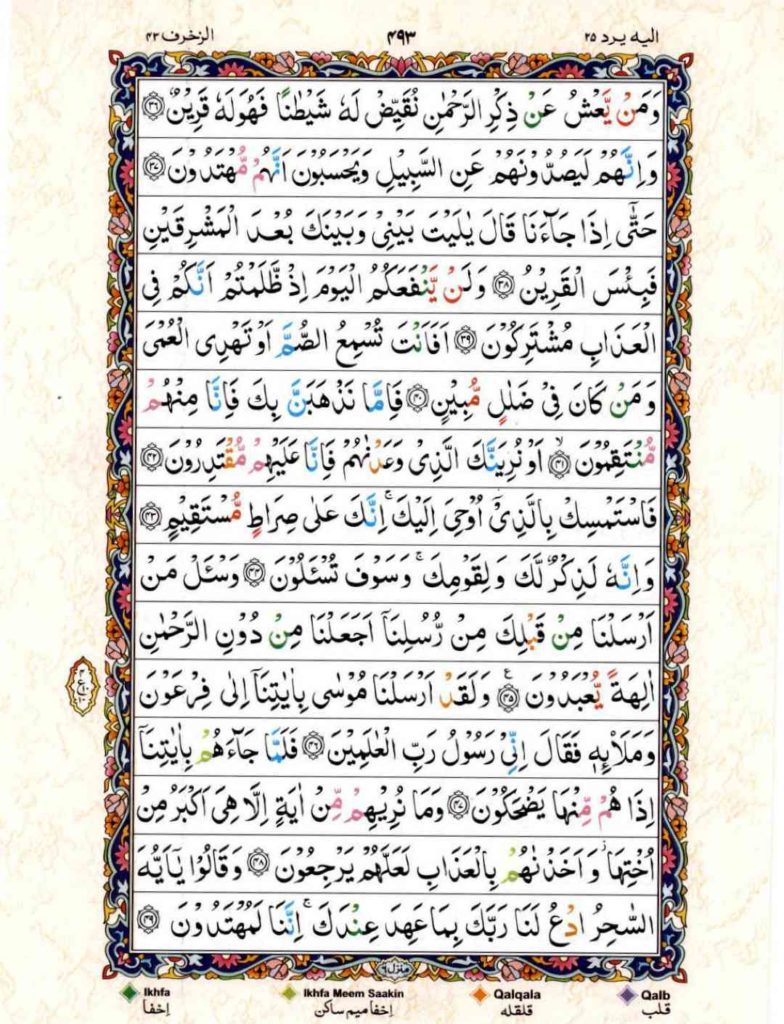 الیه یرد ۲۵ ۴۹۳ الزخرف ۴۳
وَمَنْ يَّعْشُ عَنْ ذِكْرِ الرَّحْمٰنِ نُقَيِّضْ لَهٗ شَيْطٰنًا فَهُوَ لَهٗ قَرِيْنٌ ﴿۳۶﴾
وَاِنَّهُمْ لَيَصُدُّوْنَهُمْ عَنِ السَّبِيْلِ وَيَحْسَبُوْنَ اَنَّهُمْ مُّهْتَدُوْنَ ﴿۳۷﴾
حَتّٰٓى اِذَا جَآءَنَا قَالَ يٰلَيْتَ بَيْنِيْ وَبَيْنَكَ بُعْدَ الْمَشْرِقَيْنِ
فَبِئْسَ الْقَرِيْنُ ﴿۳۸﴾ وَلَنْ يَّنْفَعَكُمُ الْيَوْمَ اِذْ ظَّلَمْتُمْ اَنَّكُمْ فِي
الْعَذَابِ مُشْتَرِكُوْنَ ﴿۳۹﴾ اَفَاَنْتَ تُسْمِعُ الصُّمَّ اَوْ تَهْدِي الْعُمْيَ
وَمَنْ كَانَ فِيْ ضَلٰلٍ مُّبِيْنٍ ﴿۴۰﴾ فَاِمَّا نَذْهَبَنَّ بِكَ فَاِنَّا مِنْهُمْ
مُّنْتَقِمُوْنَ ۙ﴿۴۱﴾ اَوْ نُرِيَنَّكَ الَّذِيْ وَعَدْنٰهُمْ فَاِنَّا عَلَيْهِمْ مُّقْتَدِرُوْنَ ﴿۴۲﴾
فَاسْتَمْسِكْ بِالَّذِيْٓ اُوْحِيَ اِلَيْكَ ۚ اِنَّكَ عَلٰى صِرَاطٍ مُّسْتَقِيْمٍ ﴿۴۳﴾
وَاِنَّهٗ لَذِكْرٌ لَّكَ وَلِقَوْمِكَ ۚ وَسَوْفَ تُسْـَٔلُوْنَ ﴿۴۴﴾ وَسْـَٔلْ مَنْ
اَرْسَلْنَا مِنْ قَبْلِكَ مِنْ رُّسُلِنَآ اَجَعَلْنَا مِنْ دُوْنِ الرَّحْمٰنِ
اٰلِهَةً يُّعْبَدُوْنَ ﴿۴۵﴾ ع وَلَقَدْ اَرْسَلْنَا مُوْسٰى بِاٰيٰتِنَآ اِلٰى فِرْعَوْنَ
وَمَلَا۟ئِهٖ فَقَالَ اِنِّيْ رَسُوْلُ رَبِّ الْعٰلَمِيْنَ ﴿۴۶﴾ فَلَمَّا جَآءَهُمْ بِاٰيٰتِنَآ
اِذَا هُمْ مِّنْهَا يَضْحَكُوْنَ ﴿۴۷﴾ وَمَا نُرِيْهِمْ مِّنْ اٰيَةٍ اِلَّا هِيَ اَكْبَرُ مِنْ
اُخْتِهَا ۡ وَاَخَذْنٰهُمْ بِالْعَذَابِ لَعَلَّهُمْ يَرْجِعُوْنَ ﴿۴۸﴾ وَقَالُوْا يٰٓاَيُّهَ
السّٰحِرُ ادْعُ لَنَا رَبَّكَ بِمَا عَهِدَ عِنْدَكَ ۚ اِنَّنَا لَمُهْتَدُوْنَ ﴿۴۹﴾
منزل ۶
Ikhfa Ikhfa Meem Saakin Qalqala Qalb
إخفا إخفا ميم ساكن قلقله قلب